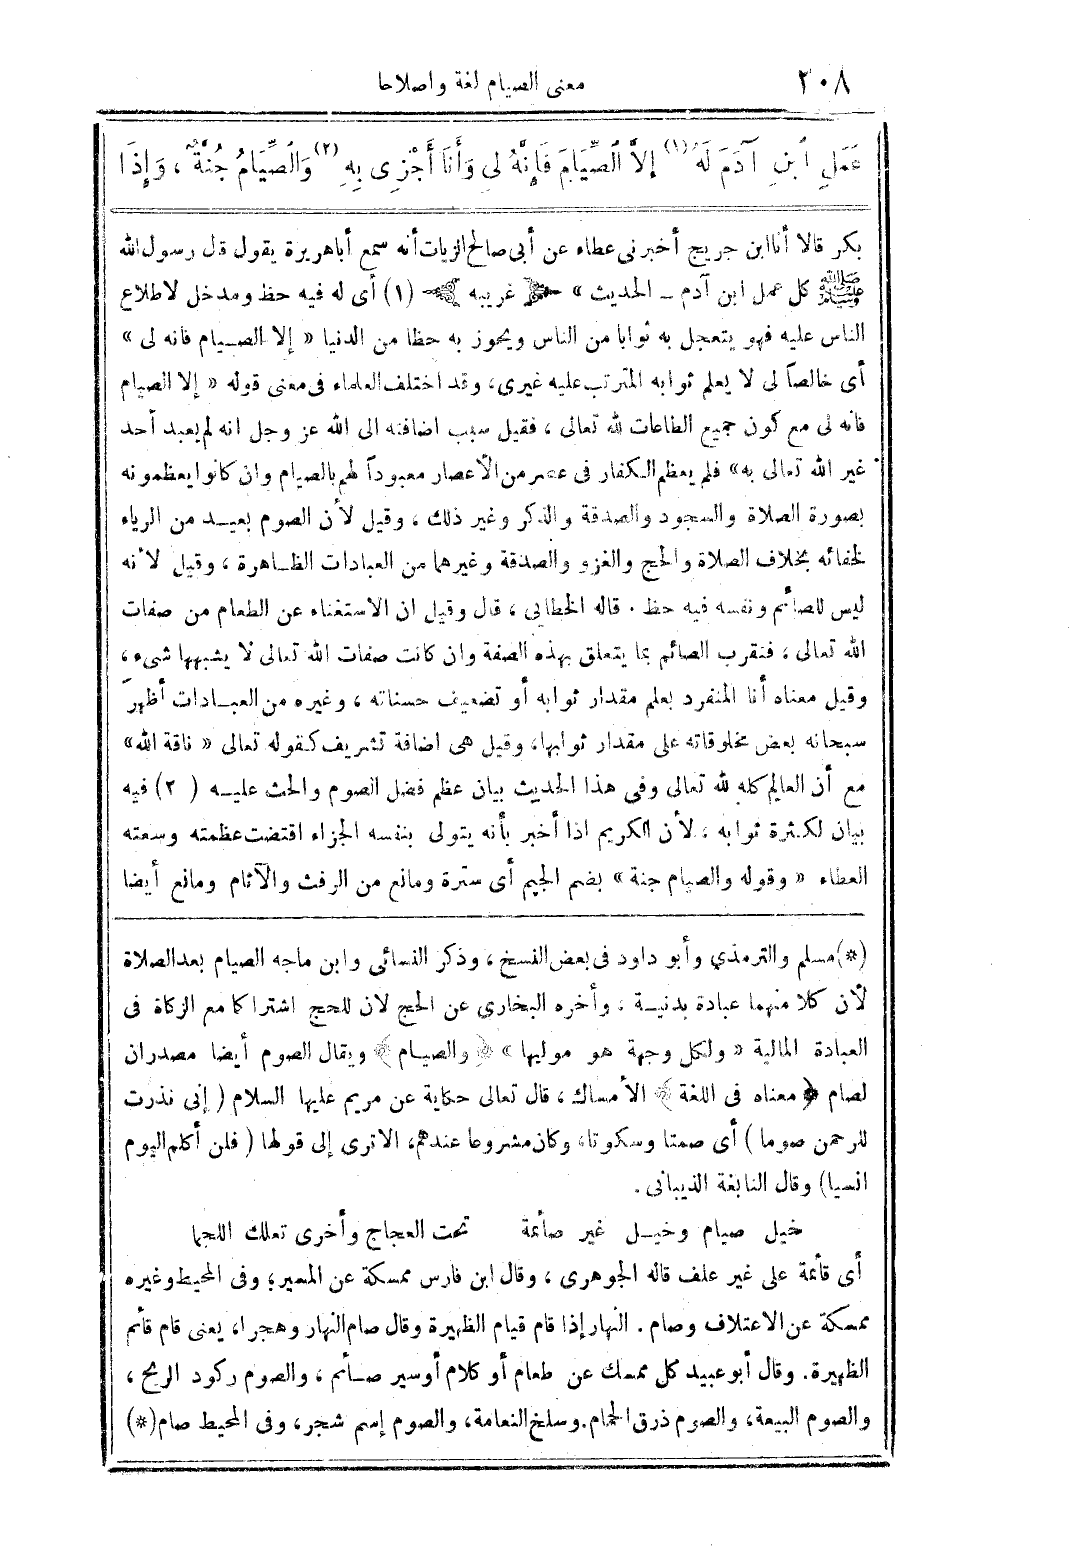 ٢٠٨ معنى الصيام لغة واصلاحا
عَمَلِ ابْنِ آدَمَ لَهُ (١) إِلاَّ الصِّيَامَ فَإِنَّهُ لِي وَأَنَا أَجْزِى بِهِ (٢) وَالصِّيَامُ جُنَّةٌ ، وَإِذَا
بكر قالا أنا ابن جريج أخبرنى عطاء عن أبى صالح الزيات أنه سمع أبا هريرة يقول قال رسول الله
ﷺ كل عمل ابن آدم ـ الحديث » غريبه (١) أى له فيه حظ ومدخل لاطلاع
الناس عليه فهو يتعجل به ثوابا من الناس ويحوز به حظا من الدنيا « إلا الصيام فانه لى »
أى خالصاً لى لا يعلم ثوابه المترتب عليه غيرى، وقد اختلف العلماء فى معنى قوله « إلا الصيام
فانه لى مع كون جميع الطاعات لله تعالى ، فقيل سبب اضافته الى الله عز وجل انه لم يعبد أحد
غير الله تعالى به» فلم يعظم الكفار فى عصر من الأعصار معبوداً لهم بالصيام وان كانوا يعظمونه
بصورة الصلاة والسجود والصدقة والذكر وغير ذلك ، وقيل لأن الصوم بعيد من الرياء
لخفائه بخلاف الصلاة والحج والغزو والصدقة وغيرهما من العبادات الظاهرة ، وقيل لأنه
ليس للصائم ونفسه فيه حظ . قاله الخطابى ، قال وقيل ان الاستغناء عن الطعام من صفات
الله تعالى ، فتقرب الصائم بما يتعلق بهذه الصفة وان كانت صفات الله تعالى لا يشبهها شىء ،
وقيل معناه أنا المنفرد بعلم مقدار ثوابه أو تضعيف حسناته ، وغيره من العبادات أظهر
سبحانه بعض مخلوقاته على مقدار ثوابها، وقيل هى اضافة تشريف كقوله تعالى « ناقة الله»
مع أن العالم كله لله تعالى وفى هذا الحديث بيان عظم فضل الصوم والحث عليه ( ٢ ) فيه
بيان لكثرة ثوابه ، لأن الكريم اذا أخبر بأنه يتولى بنفسه الجزاء اقتضت عظمته وسعته
العطاء « وقوله والصيام جنة » بضم الجيم أى سترة ومانع من الرفث والآثام ومانع أيضا
(*) مسلم والترمذي وأبو داود فى بعض النسخ ، وذكر النسائى وابن ماجه الصيام بعد الصلاة
لأن كلا منهما عبادة بدنية ، وأخره البخارى عن الحج لان للحج اشتراكا مع الزكاة فى
العبادة المالية « ولكل وجهة هو موليها » ﴿ والصيام ﴾ ويقال الصوم أيضا مصدران
لصام ﴿ معناه فى اللغة ﴾ الأمساك ، قال تعالى حكاية عن مريم عليها السلام ( إنى نذرت
للرحمن صوما ) أى صمتا وسكوتا، وكان مشروعا عندهم، الاترى إلى قولها ( فلن أكلم اليوم
انسيا) وقال النابغة الذبيانى .
خيل صيام وخيل غير صائمة تحت العجاج وأخرى تعلك اللجما
أى قائمة على غير علف قاله الجوهرى ، وقال ابن فارس ممسكة عن المسير؛ وفى المحيط وغيره
ممسكة عن الاعتلاف وصام . النهار إذا قام قيام الظهيرة وقال صام النهار وهجرا، يعنى قام قائم
الظهيرة. وقال أبو عبيد كل ممسك عن طعام أو كلام أوسير صائم ، والصوم ركود الريح ،
والصوم البيعة، والصوم ذرق الحمام. وسلخ النعامة، والصوم إسم شجر، وفى المحيط صام (*)